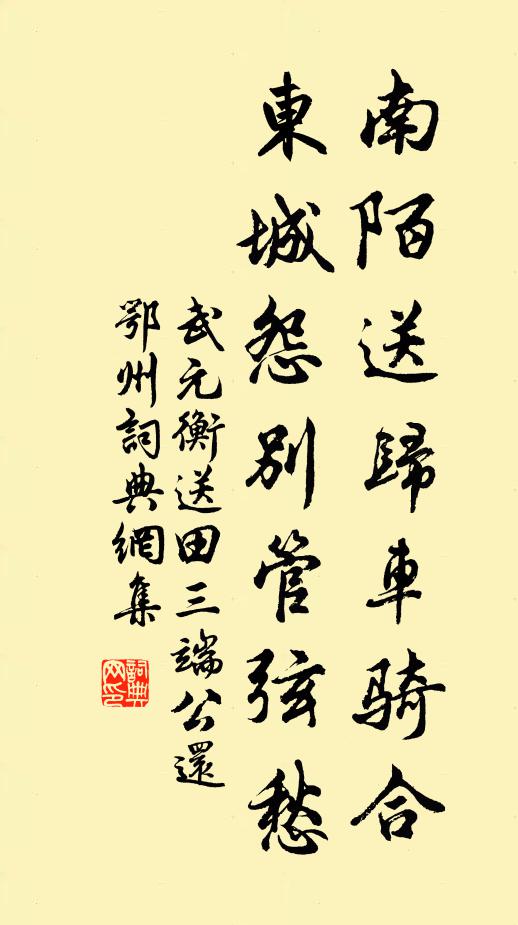 南陌送歸車騎合
東城怨別管弦愁
武元衡送田三端公還
鄂州詞典網集
詞典網印